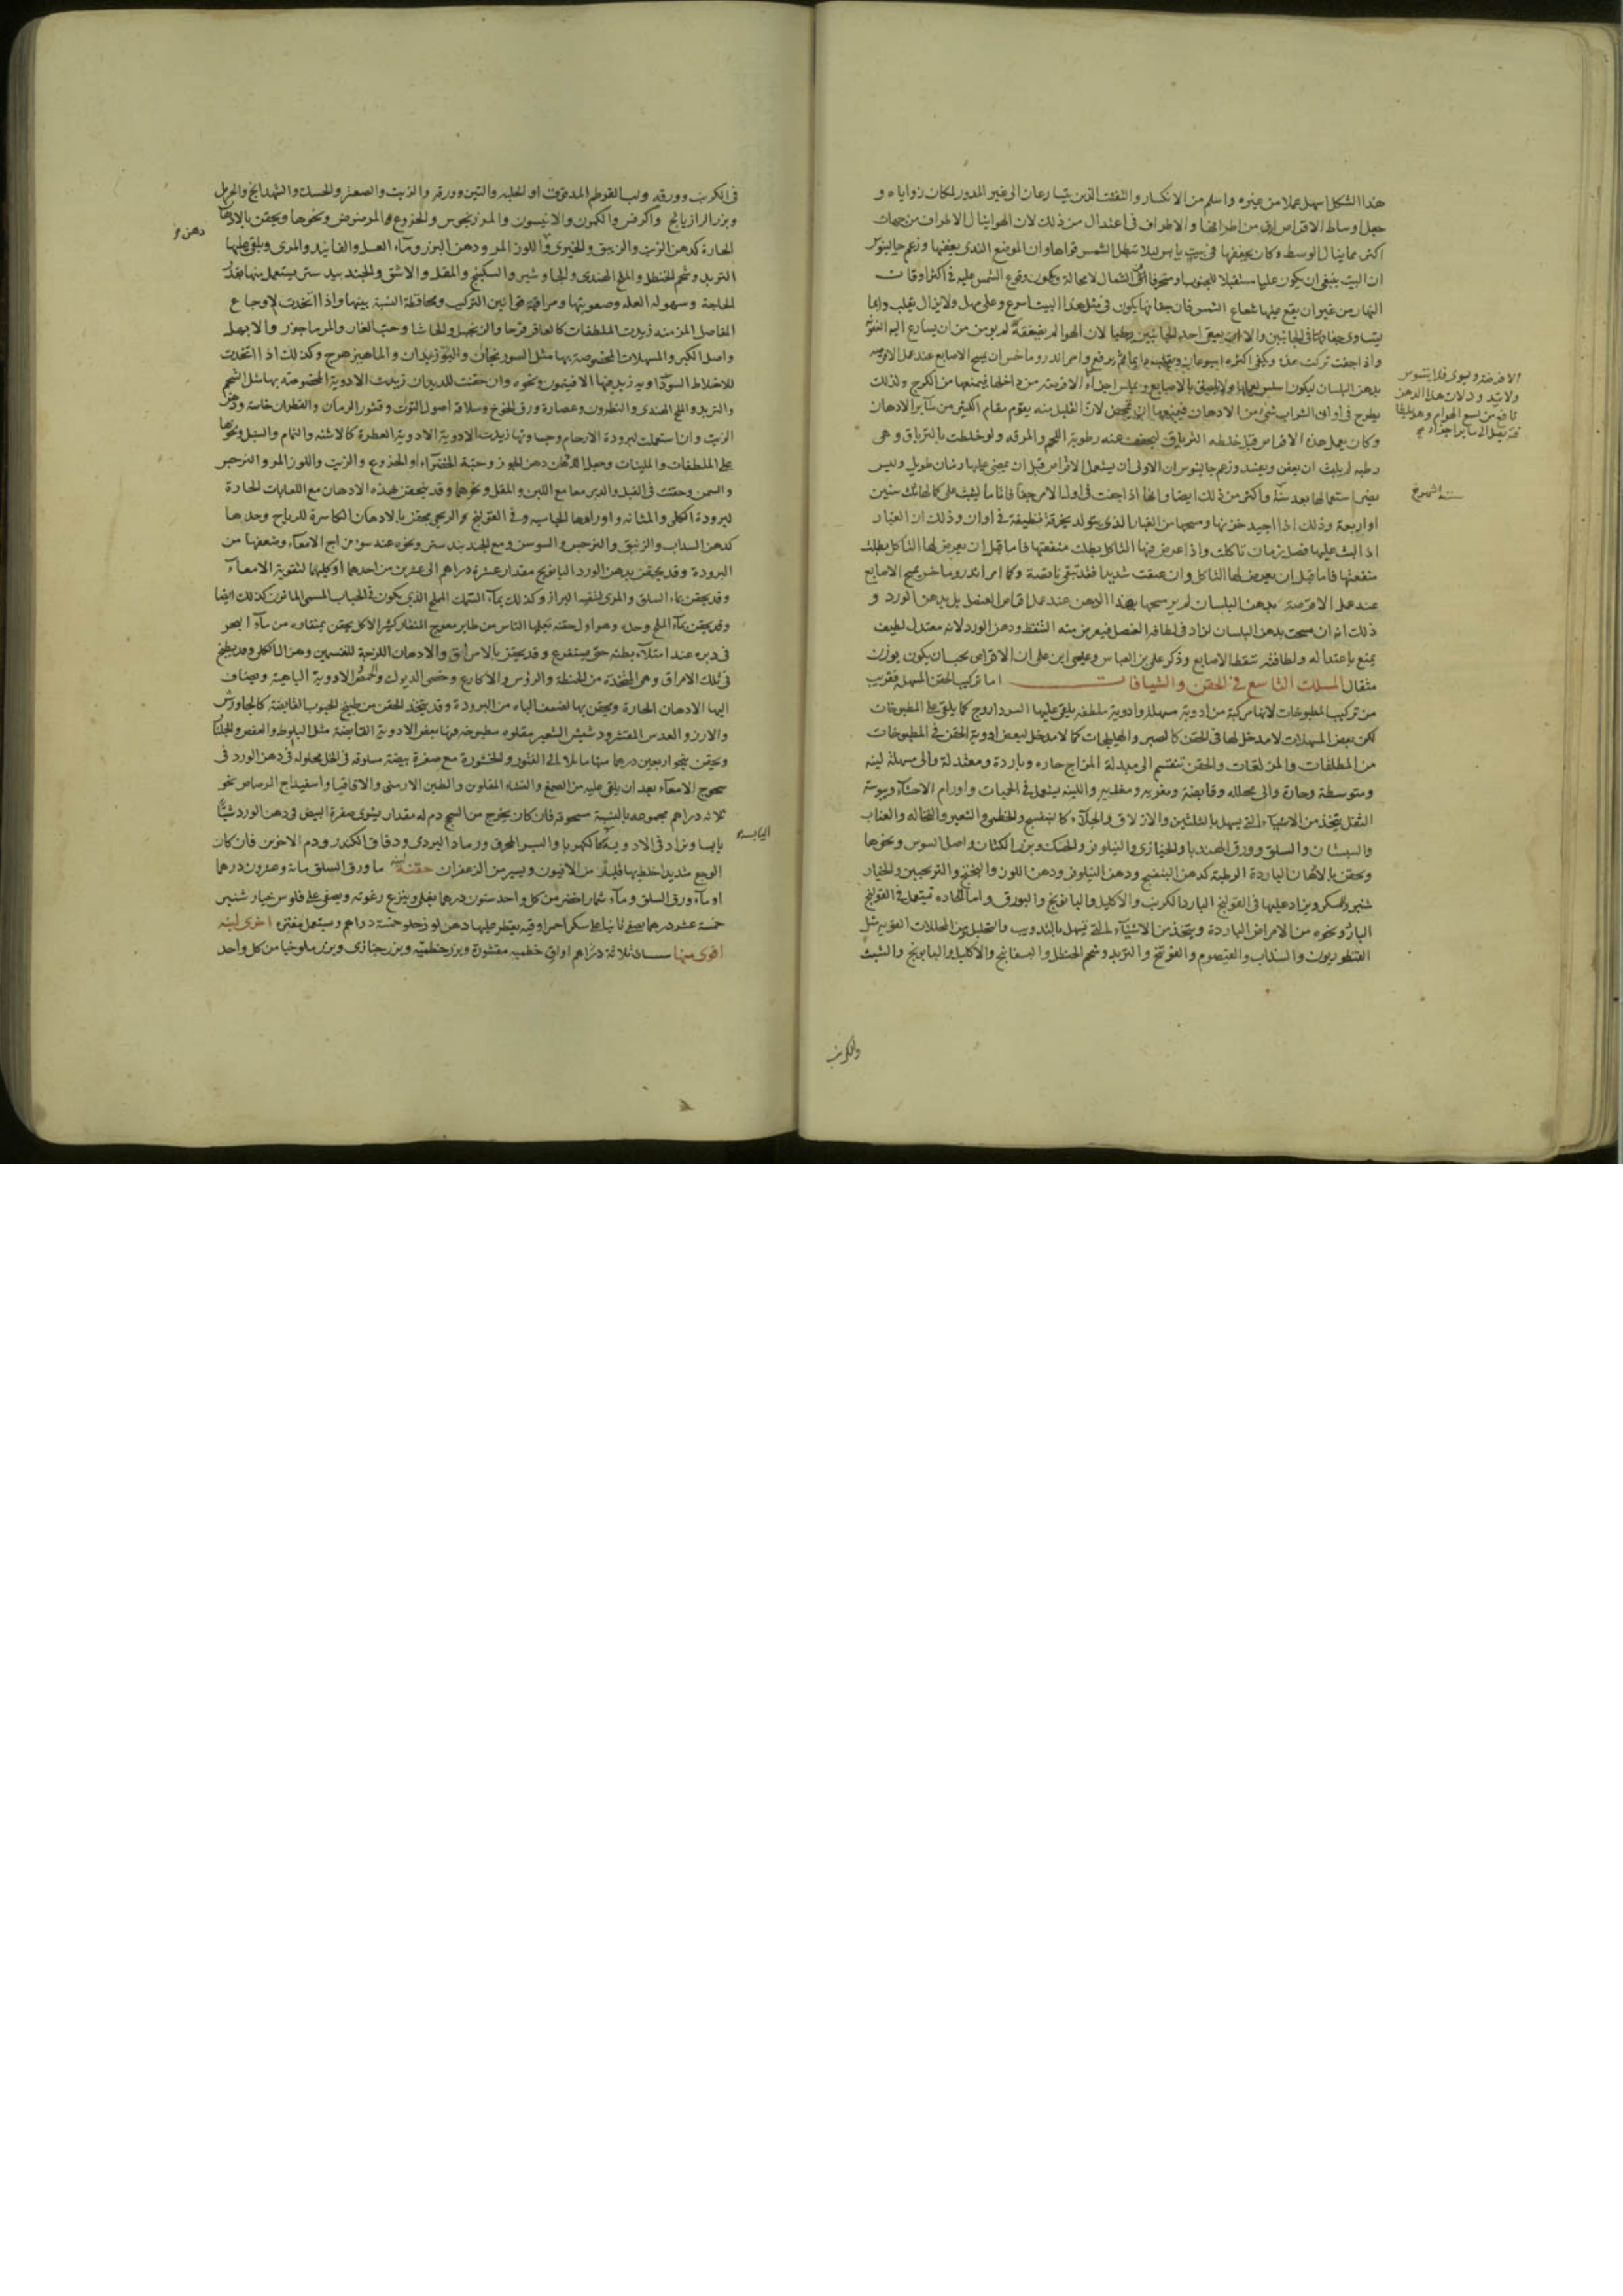 هذا الشكل اسهل عملا من غيره واسلم من الانكسار والتفتت الذين يتسارعان الى غير المدور لمكان زواياه و
جعل اوساط الاقراص ارق من اطرافها والاطراف فى اعتدال من ذلك لان الهوا ينال الاطراف من جهات
اكثر مما ينال الوسط وكان يجففها فى بيت يابس ليلا تبطل الشمس قواها وان الموضع الندى يعفنها وزعم جالينوس
ان البيت ينبغى ان يكون عليا مستقبلا للجنوب الشمال لا محالة ويكون وقوع الشمس عليه فى اكثر اوقات
النهار من غير ان يقع عليها شعاع الشمس فان جفافها يكون فى مثل هذا البيت اسرع وعلى مهل ولا يزال يقلب دايما
ليتساوى جفافها فى الجانبين والا احد الجانبين رطبا لان الهوا لم يومن من ان يسارع اليه العفن
واذا جفت تركت وكفى اكثره اسبوعان ثم يرفع وامر اندروماخس ان يمسح الاصابع عند عمل الاقرصه
بدهن البلسان ليكون اسلس لعملها ولا يلصق بالاصابع اجزاء الاقرصة من داخلها فيمنعها من الكرج ولذلك
يطرح فى اوانى الشراب شى من الادهان فيمنعها ان تحمض لان القليل منه يقوم مقام الكثير من ساير الادهان
وكان يعمل هذه الاقراص قبل خلطه الترياق ليجفف عنه رطوبة اللحم والمرقه ولو خلطت بالترياق وهى
رطبه لم يلبث ان يعفن ويفسد وزعم جالينوس ان الاولى ان يستعمل الاقراص قبل ان يمضى عليها زمان طويل وليس
يضر استعمالها بعد سنة واكثر من ذلك ايضا وانها اذا جفت فى اول الامر جفافا تاما لبثت على كمالها ثلث سنين
او اربعة وذلك اذا اجيد خزنها ومسحها من الغبار الذى يتولد بخرقة نظيفة فى اوان وذلك ان الغبار
اذا لبث عليها فضل زمان تاكلت واذا عرض فيها التاكل بطلت منفعتها فاما قبل ان يعرض لها التاكل بطلت
منفعتها فاما قبل ان يعرض لها التاكل وان عتقت شديدا فقد تبقى ناقصة وكما امر اندروماخس بمسح الاصابع
عند عمل الاقرصة بدهن البلسان لم ير مسحها بهذا الدهن عند عمل اقراص العنصل بل بدهن الورد و
ذلك انه ان مسحت بدهن البلسان لزاد فى لطافة العنصل فيعرض منه التنفط ودهن الورد لانه معتدل لطيف
يمنع باعتداله ولطافته تنفط الاصابع وذكر على بن العباس وعيسى ابن على ان الاقراص يجب ان يكون بوزن
مثقال المسلك التاسع فى الحقن والشيافات اما تركيب الحقن المسهلة فقريب
من تركيب المطبوخات لانها مركبة من ادوية مسهلة وادوية ملطفه يلقى عليها السدا روج كما يلقى على المطبوخات
لكن بعض المسهلات لا مدخل لها فى الحقن كالصبر والهليلجات كما لا مدخل لبعض ادوية الحقن فى المطبوخات
من الملطفات والمزلقات والحقن تنقسم الى مبدلة المزاج حاره وباردة ومعتدلة والى مسهلة لينه
ومتوسطة وحارة والى محلله وقابضة ومغريه واللينه يستعمل فى الحميات واورام الاحشاء ويبوسة
الثفل يتخذ من الاشياء التى يسهل بالتليين والازلاق والجلاء كالبنفسج والخطمى والشعير والنخاله والعناب
والسبستان والسلق وورق الهندبا والخبازى والنيلوفر والحسك وبزر الكتان واصل السوس ونحوها
ويحقن بالادهان الباردة الرطبة كدهن البنفسج ودهن النيلوفر ودهن اللوز والترنجبين والخيار
شنبر والسكر ويزاد عليها فى القولنج البارد الكرنب والاكليل والبابونج والبورق واما الحاده فيستعمل فى القولنج
البارد ونحوه من الامراض الباردة ويتخذ من الاشياء التى تسهل بالتذويب والتحليل من المحللات القويه مثل
القنطوريون والسذاب والقيصوم والفوتنج والتربد وشحم الحنظل والبسفايج والاكليل والبابونج والشبث
والكرنب
فى الكرنب وورقه ولب القرطم المدقوق او الحلبه والتين وورقه والزيت والصعتر والحسك والشهدانج والحرمل
وبزر الرازيانج والكرفس والكمون والانيسون والمرزنجوش والخروع ونحوها ويحقن بالادهان
الحارة كدهن الزيت والزنبق والخيرى واللوز المر ودهن البزر وماء العسل والفانيد والمرى ويلقى عليها
التربد وشحم الحنظل والملح الهندى والجاوشير والسكبينج والمقل والاشق والجندبيدستر يستعمل منها بقدر
الحاجة وسهولة العله وصعوبتها ومراقبة قوانين التركيب ومحافظة النسبة بينها واذا اتخذت لاوجاع
المفاصل المزمنه زيدت الملطفات كالعاقرقرحا والزنجبيل والحاشا وحب الغار والمرماحوز والابهل
واصل الكبر والمسهلات المخصوصة بها مثل السورنجان والبوزيدان والماهيزهرج وكذلك اذا اتخذت
للاخلاط السوداويه زيد فيها الافتيمون ونحوه وان حقنت للديدان زيدت الادوية المخصوصة بها مثل الشيح
والتربد والملح الهندى والنطرون وعصارة ورق الخوخ وسلاقة اصول التوت وقشور الرمان والقطران خاصة
الزيت وان استعملت لبرودة الارحام زيدت الادوية العطرة كالاشنه والنمام والسنبل ونحوها
على الملطفات والملينات وجعل الدهان دهن الجوز وحبة الخضراء او الخروع والزيت واللوز المر والنرجس
والسمن وحقنت فى القبل والدبر معا مع اللبن والمقل ونحوها وقد يحقن بهذه الادهان مع اللعابات الحارة
لبرودة الكلى والمثانه واورامها الجاسيه وفى القولنج الريحى يحقن بالادهان الكاسرة للرياح وحدها
كدهن السداب والزنبق والنرجس والسوسن ومع الجندبيدستر ونحوه عند سو مزاج الامعاء وضعفها من
البرودة وقد يحقن بدهن الورد البابونج مقدار عشرة دراهم الى عشرين من احدهما او كليهما لتقوية الامعاء
وقد يحقن بماء السلق والمرى لتنقيه البراز وكذلك بماء السمك الملح الذى يكون فى الحباب المسمى المانون كذلك ايضا
وقد يحقن بماء الملح وحده وهو اول حقنه تعلمها الناس من طاير معوج المنقار كثير الاكل يحقن بمنقاره من ماء البحر
فى دبره عند امتلاء بطنه حتى يستفرغ وقد يحقن بالامراق والادهان اللزجة
فى تلك الامراق وهى المتخذة من الحنطة والرؤس والاكارع وخصى الديوك والحمص الادوية الباهية ويضاف
اليها الادهان الحارة ويحقن بها لضعف الباه من البرودة وقد يتخذ الحقن من طبيخ الحبوب القابضة كالجاورس
والارز والعدس المقشر ودشيش الشعير مقلوه مطبوخه فيها بعض الادوية القابضة مثل البلوط والعفص والجلنار
ويحقن بنحو اربعين درهما منها مع صفرة بيضة مسلوقة فى الخل محلوله فى دهن الورد فى
سحوج الامعاء بعد ان يلقى عليه من الصمغ والنشاء المقلون والطين الارمنى والاقاقيا واسفيداج الرصاص نحو
ثلاثه دراهم مجموعه بالنسبة مسحوقة فان كان يخرج من السحج دم له مقدار يشوى صفرة البيض فى دهن الورد شيا
يابسا ويزاد فى الادوية الكهربا والبسد المحرق ورماد البردى ودقاق الكندر ودم الاخوين فان كان
الوجع شديدا خلط بها قليلا من الافيون ويسير من الزعفران حقنة لينة ما ورق السلق مائة وعشرون درهما
او ماء ورق السلق وماء شمار اخضر من كل واحد ستون درهما يغلى وينزع رغوته ويصفى على فلوس خيار شنبر
خمسة عشر درهما يصفى ثانيا على سكر احمر اوقيه يقطر عليها دهن لوز حلو خمسة دراهم ويستعمل مفتره اخرى لينه
اقوى منها سنا ثلاثة دراهم اواق خطميه مقشورة وبزر خطميه وبزر خبازى وبزر ملوخيا من كل واحد